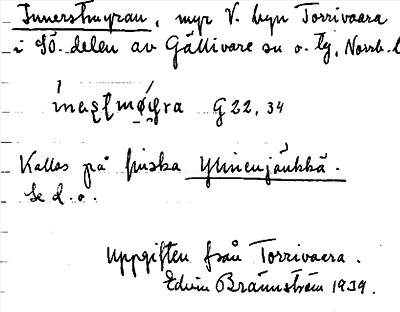 Innerstmyran, myr V. byn Torrivaara
i SÖ. delen av Gällivare sn o. tg, Norrb. l
G 22, 34
Kallas på finska Ylinenjänkkä.
Se d. o.
Uppgiften från Torrivaara.
Edvin Brännström 1939.